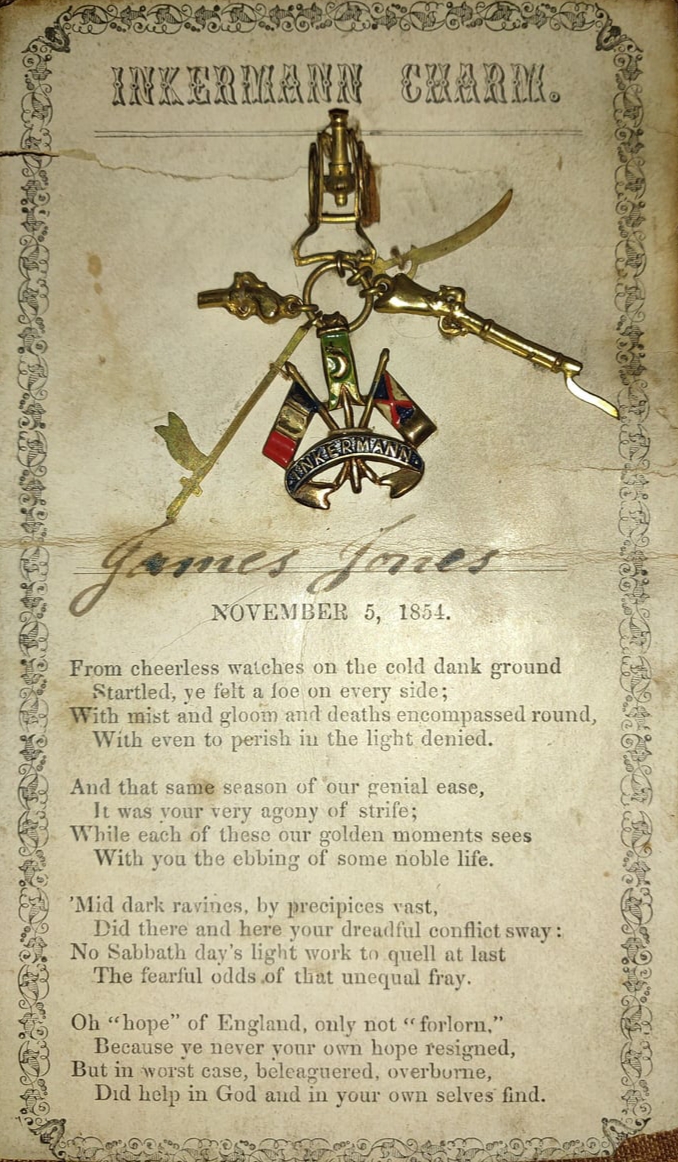 INKERMANN CHARM.
INKERMANN
James Jones
NOVEMBER 5, 1854.
From cheerless watches on the cold dank ground
Startled, ye felt a foe on every side;
With mist and gloom and deaths encompassed round,
With even to perish in the light denied.
And that same season of our genial ease,
It was your very agony of strife;
While each of these our golden moments sees
With you the ebbing of some noble life.
'Mid dark ravines, by precipices vast,
Did there and here your dreadful conflict sway:
No Sabbath day's light work to quell at last
The fearful odds of that unequal fray.
Oh "hope" of England, only not "forlorn,"
Because ye never your own hope resigned,
But in worst case, beleaguered, overborne,
Did help in God and in your own selves find.